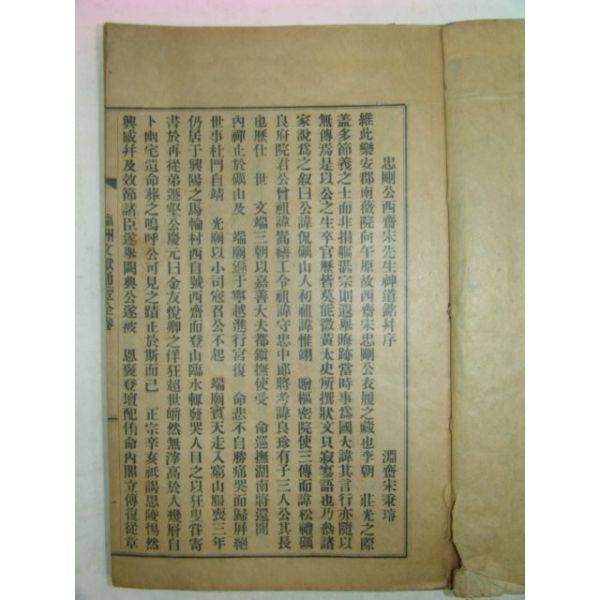 忠剛公西齋宋先生神道銘幷序
淵齋宋秉璿
維此樂安郡南薇院向午原故西齋宋忠剛公衣履之藏也李朝 莊光之際
盖多節義之士而非捐軀湛宗則遐擧晦跡當時事爲國大諱其言行亦隨以
無傳焉是以公之生卒官歷皆莫能徵黃太史所撰狀文只寂寥語也乃爇諸
家說爲之叙曰公諱侃礪山人礽祖諱惟翊 贈樞密院使三傳而諱松禮礪
良府院君公曾祖諱 繕工令祖諱守忠中郞將考諱良珍有子三人公其長
也歷仕 世 文端三朝以嘉善大夫都鎭撫使受 命巡撫湖南將還聞
內禪止於礪山及 端廟遜于寧越進行宮復 命悲不自勝痛哭而歸屛絕
世事杜門自靖 光廟以小司寇召公不起 端廟賓天走入窮山服喪三年
仍居于興陽之馬輪村西自號西齋而登山臨水輒發哭人目之以狂 甞寄
書於再從弟遯 公慶元曰金友悅卿之佯狂超世皭然無滓高於人幾層自
卜幽宅遺命葬之嗚呼公可見之蹟止於斯而已 正宗辛亥祗謁思陵惕然
興感幷及效節諸臣遂擧闕典公遂被 恩褒登壇配侑命內閣立傳復從章